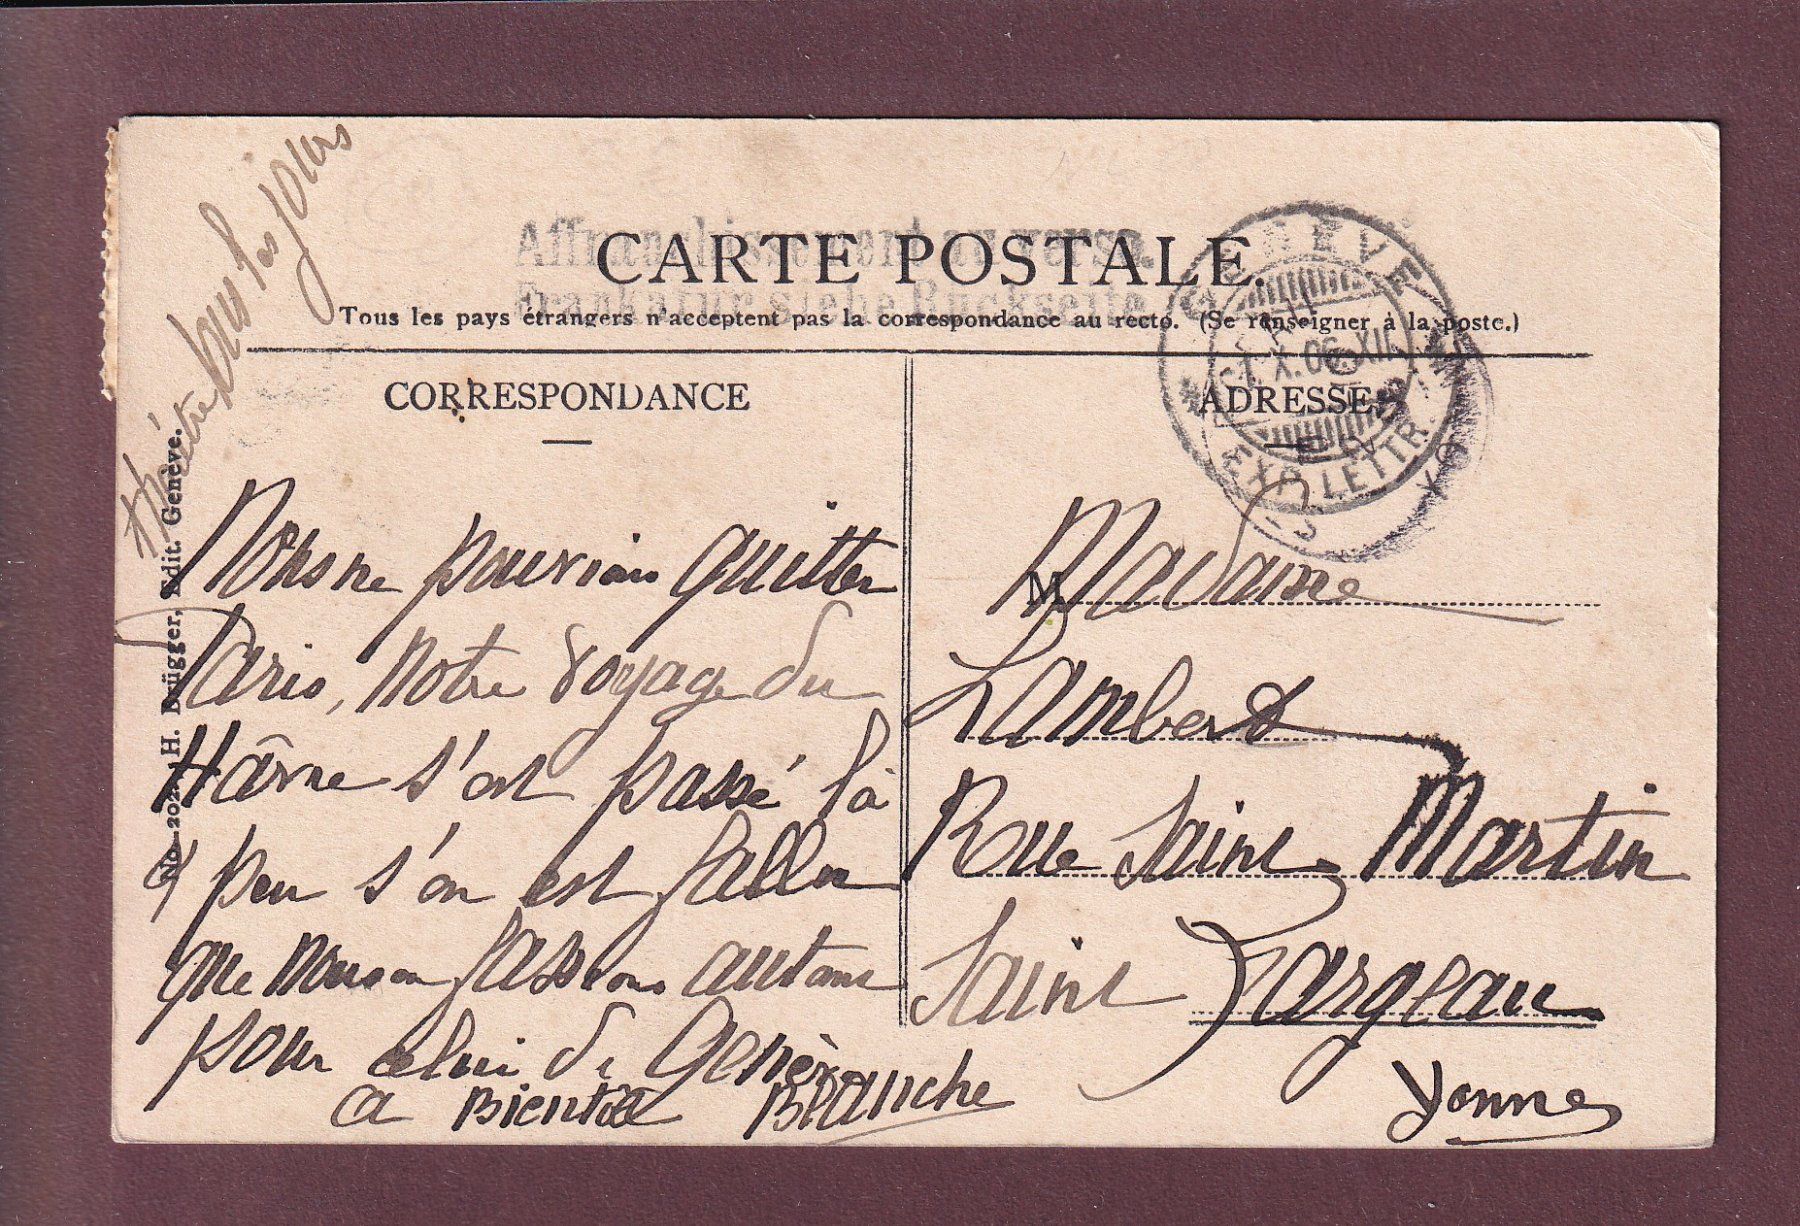 théâtre tous les jours
Affranchissement au verso.
CARTE POSTALE.
Frankatur siehe Rückseite.
Tous les pays étrangers n'acceptent pas la correspondance au recto. (Se renseigner à la poste.)
GENÈVE
X.06.XII
EXP. LETTR.
CORRESPONDANCE
ADRESSE
No 202 H. Brügger, Edit. Genève.
Nous ne pouvions quitter
Paris, Notre voyage du
Hâvre s'est passé là
peu s'en est fallu
que nous en fassions autant
pour celui de Genève
a Bientôt Blanche
Madame
Lambert
Rue Saint Martin
Saint Fargeau
Yonne